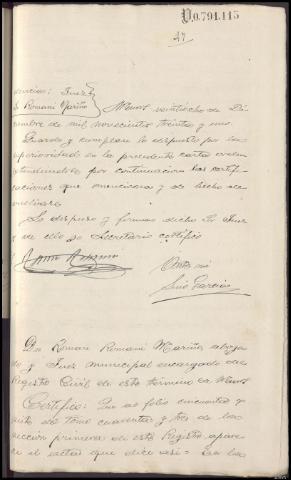 V.0.791.115
47
Juez
Romani Mariño Muros veintiocho de Di-
ciembre de mil novecientos treinta y uno.
Guarde y cumplase lo dispuesto por la
superioridad en la precedente carta orden
por continuacion las certifi-
caciones que menciona y de hecho
Lo dispuso y firma dicho Sr Juez
y de ello yo Secretario certifico
Ante mi
Garcia
Don Roman Romani Mariño, aboga-
do y Juez municipal encargado del
Registro Civil de este termino de Muros
Certifico: Que al folio cincuenta y
del tomo cuarenta y tres de la
seccion primera de este Registro, apare-
ce el acta que dice asi: = En la